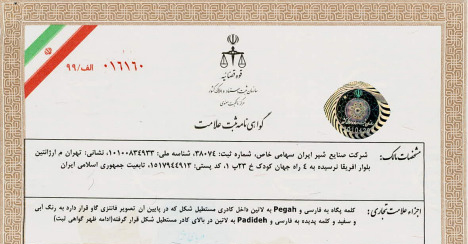 الف/۹۹ ۰۱۶۱۶۰
قوه قضائیه
سازمان ثبت اسناد و املاک کشور
مرکز مالکیت معنوی
گواهی نامه ثبت علامت
مشخصات مالک:
شرکت صنایع شیر ایران سهامی خاص، شماره ثبت: ۳۸۰۷۴، شناسه ملی: ۱۰۱۰۰۸۳۴۹۳۳، نشانی: تهران م ارژانتین
بلوار افریقا نرسیده به ٤ راه جهان کودک خ ۲۳پ ۱، کد پستی: ۱۵۱۷۹۴۴۹۱۳، تابعیت جمهوری اسلامی ایران
اجزاء علامت تجاری:
کلمه پگاه به فارسی و Pegah به لاتین داخل کادری مستطیل شکل که در پایین آن تصویر فانتزی گاو قرار دارد به رنگ ابی
و سفید و کلمه پدیده به فارسی و Padideh به لاتین در بالای کادر مستطیل شکل قرار گرفته(ادامه ظهر گواهی ثبت)